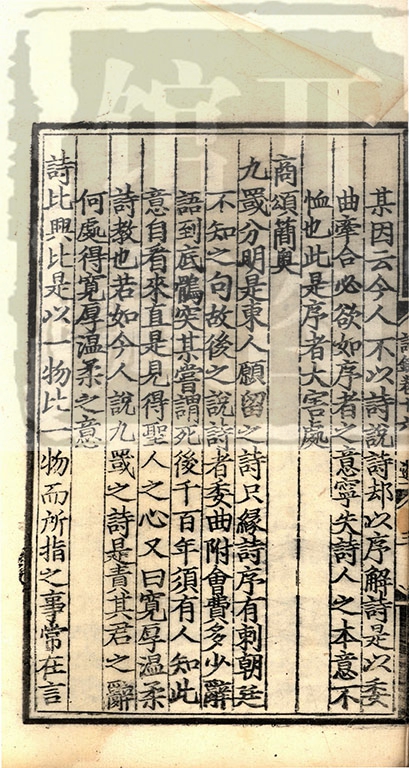 某因云今人不以詩說詩却以序解詩是以委
曲牽合必欲如序者之意寧失詩人之本意不
恤也此是序者大害處
商頌簡奧
九罭分明是東人願留之詩只緣詩序有刺朝廷
不知之句故後之說詩者委曲附會費多少辭
語到底鶻突某嘗謂死後千百年須有人知此
意自看來直是見得聖人之心又曰寬厚温柔
詩教也若如今人說九罭之詩是責其君之辭
何處得寬厚温柔之意
詩比興比是以一物比一物而所指之事常在言